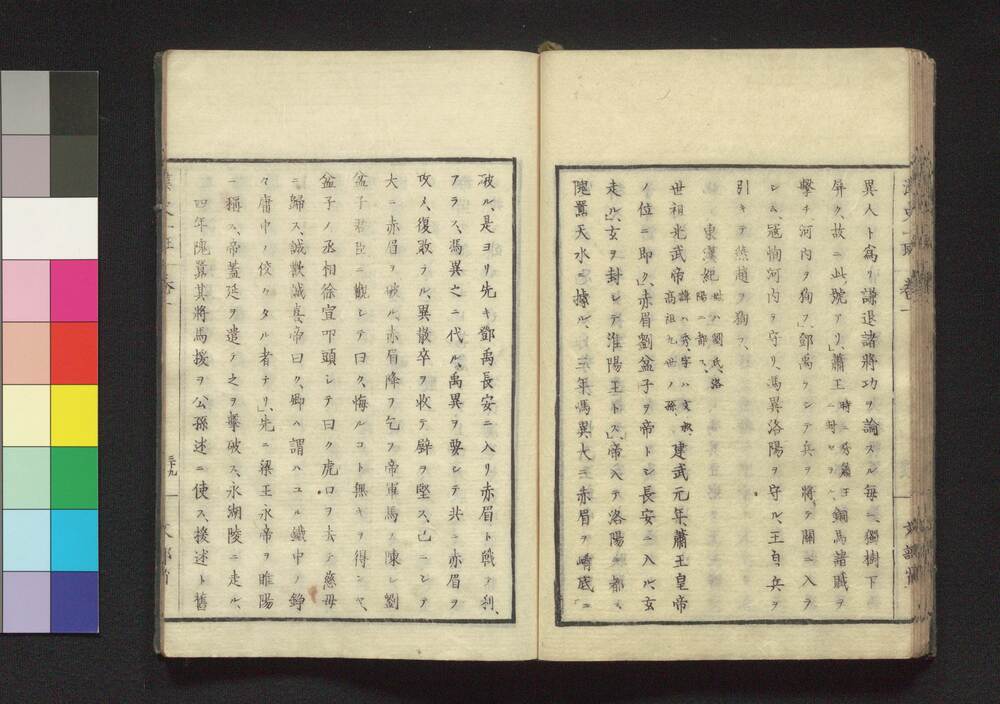 異人ト爲リ謙退諸將功ヲ論スル毎ニ獨樹下ニ
屏ク、故ニ此號アリ、蕭王 時ニ秀蕭王ニ封セラル、銅馬諸賊ヲ
撃チ河内ヲ狥フ、鄧禹ヲシテ兵ヲ將テ關ニ入ラ
シム、冦恂河内ヲ守リ馮異洛陽ヲ守ル、王自ラ兵ヲ
引キテ燕趙ヲ狥フ、
東漢紀 世々劉氏、洛陽ニ都ス、
世祖光武帝 諱ハ秀、字ハ文叔、高祖九世ノ孫、建武元年、蕭王皇帝
ノ位ニ即ク、赤眉劉盆子ヲ帝トシ長安ニ入ル、玄
走ル、玄ヲ封シテ淮陽王トス、帝入テ洛陽ニ都ス、
隗囂天水ニ據ル、三年、馮異大ニ赤眉ヲ崤底ニ
破ル、是ヨリ先キ鄧禹長安ニ入リ赤眉ト戰テ利
アラス、馮異之ニ代ル、禹異ヲ要シテ共ニ赤眉ヲ
攻メ、復敗ラル、異散卒ヲ收テ壁ヲ堅ス、已ニシテ
大ニ赤眉ヲ破ル、赤眉降ヲ乞フ、帝軍馬ヲ陳シ劉
盆子君臣ニ觀シテ曰ク、悔ルコト無キヲ得ンヤ、
盆子ノ丞相徐宣叩頭シテ曰ク虎口ヲ去テ慈母
ニ歸ス、誠歡誠喜、帝曰ク、卿ハ謂ハユル鐵中ノ錚
々庸中ノ佼々タル者ナリ、先ニ梁王永帝ヲ睢陽
ニ稱ス、帝蓋延ヲ遣テ之ヲ撃破ス、永湖陵ニ走ル、
四年隗囂其將馬援ヲ公孫述ニ使ス、援述ト舊
卷一
三十九